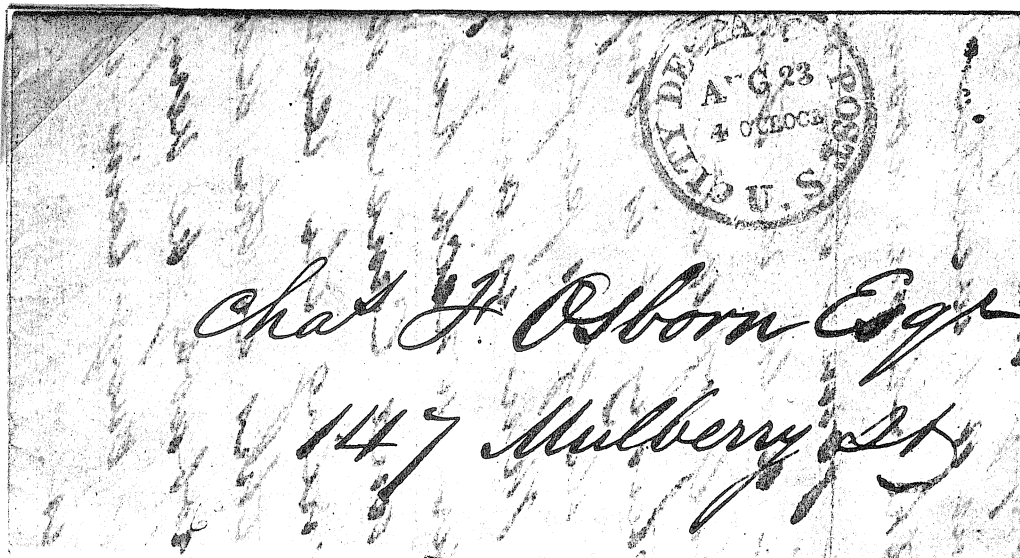 CITY DESPATCH POST
U.S.
AUG 23
4 O'CLOCK
Chas F Osborn Esqr
147 Mulberry St